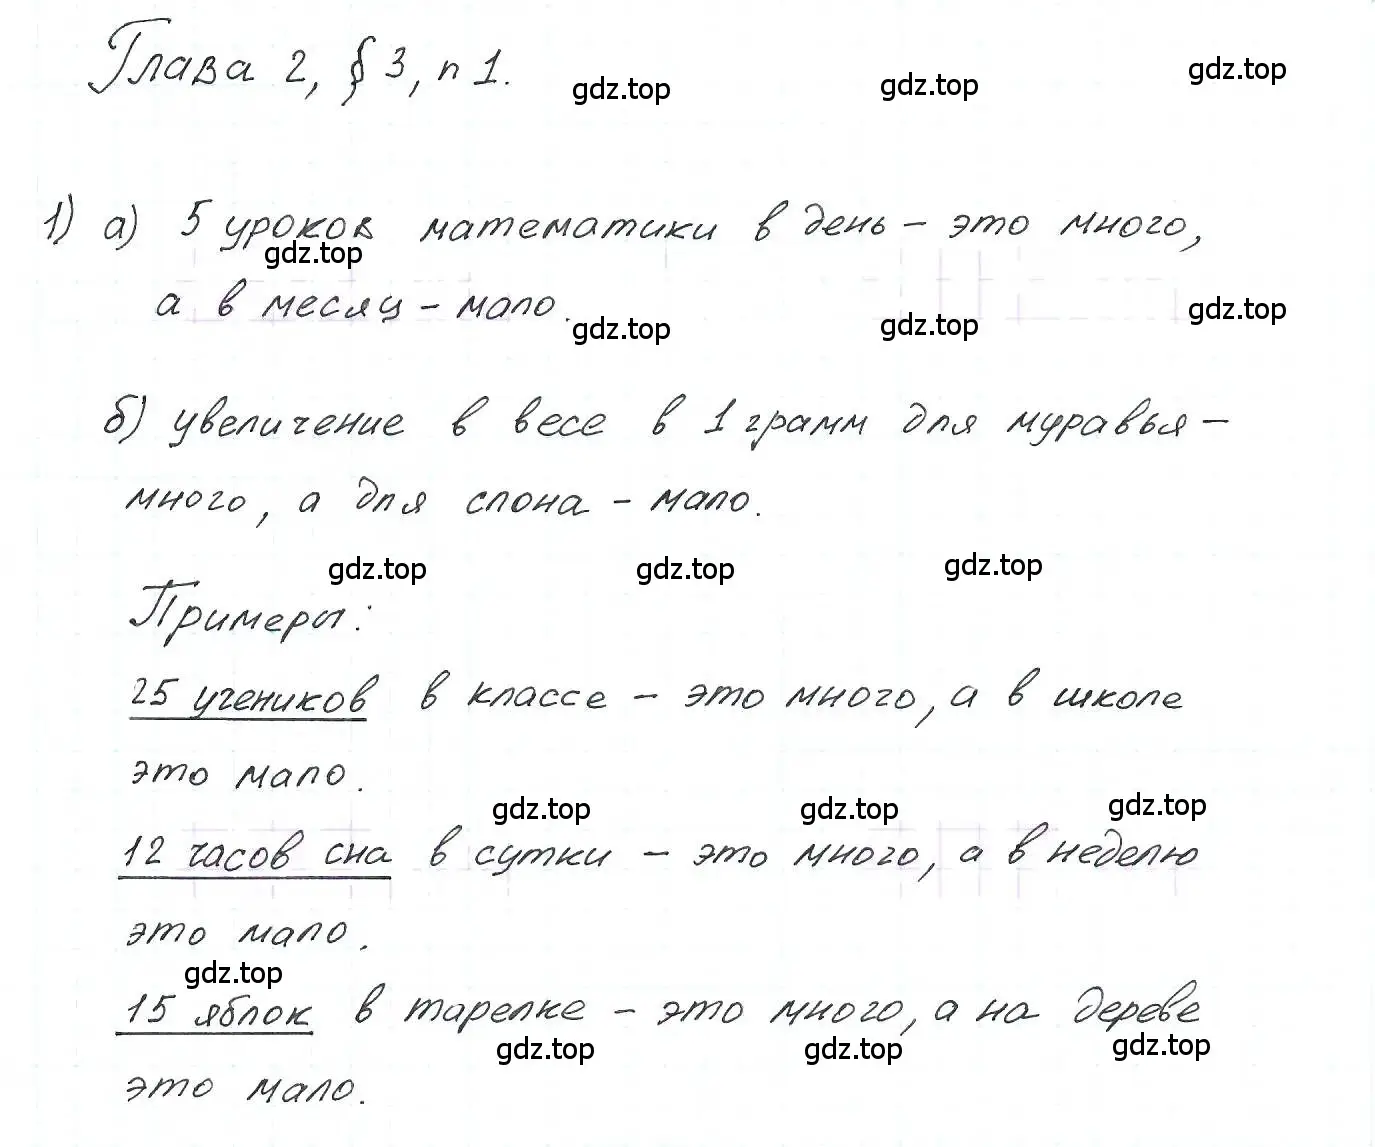 Глава 2, § 3, п 1.
gdz.top gdz.top gdz.top
1) а) 5 уроков математики в день – это много,
gdz.top
а в месяц – мало.
gdz.top gdz.top gdz.top
б) увеличение в весе в 1 грамм для муравья –
много, а для слона – мало.
gdz.top gdz.top gdz.top
Примеры:
25 учеников в классе – это много, а в школе
это мало.
gdz.top gdz.top gdz.top
12 часов сна в сутки – это много, а в неделю
это мало.
gdz.top
15 яблок в тарелке – это много, а на дереве
gdz.top gdz.top gdz.top
это мало.